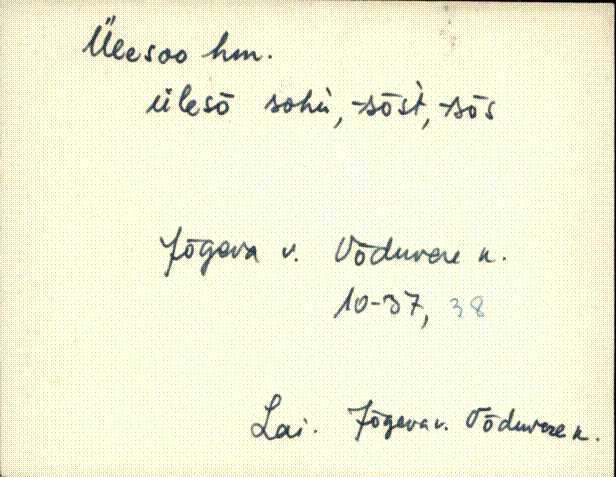 Ülesoo hm.
ülesō sohù, -sōst̀, -sōs
Jõgeva v. Võduvere k.
10-37, 38
Lai. Jõgeva v. Võduvere k.